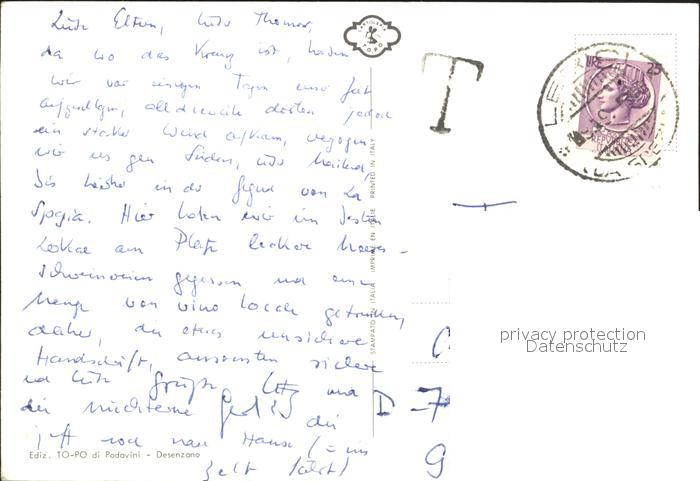 Liebe Eltern, liebe Thomas,
da wo das Kreuz ist, haben
wir vor einigen Tagen unser Zelt
aufgeschlagen, alldieweile dorten jedoch
ein starker Wind aufkam, verzogen
wir uns gen Süden, über Mailand,
bis hierher in die Gegend von La
Spezia. Hier haben wir im besten
Lokal am Platze leckere Meeres-
schweinereien gegessen und eine
Menge von vino locale getrunken,
daher, die etwas unsichere
Handschrift, ansonsten sichere
und liebe Grüße Utz und
die nüchterne Gerda, die
noch nach Hause (= ins
Zelt fährt)
Ediz. TO-PO di Podavini - Desenzano
CARTOLERIA
TOPO
STAMPATO IN ITALIA IMPRIMÉ EN ITALIE PRINTED IN ITALY
T
LIRE 25
LERICI
(LA SPEZIA)
D-7
G
privacy protection
Datenschutz